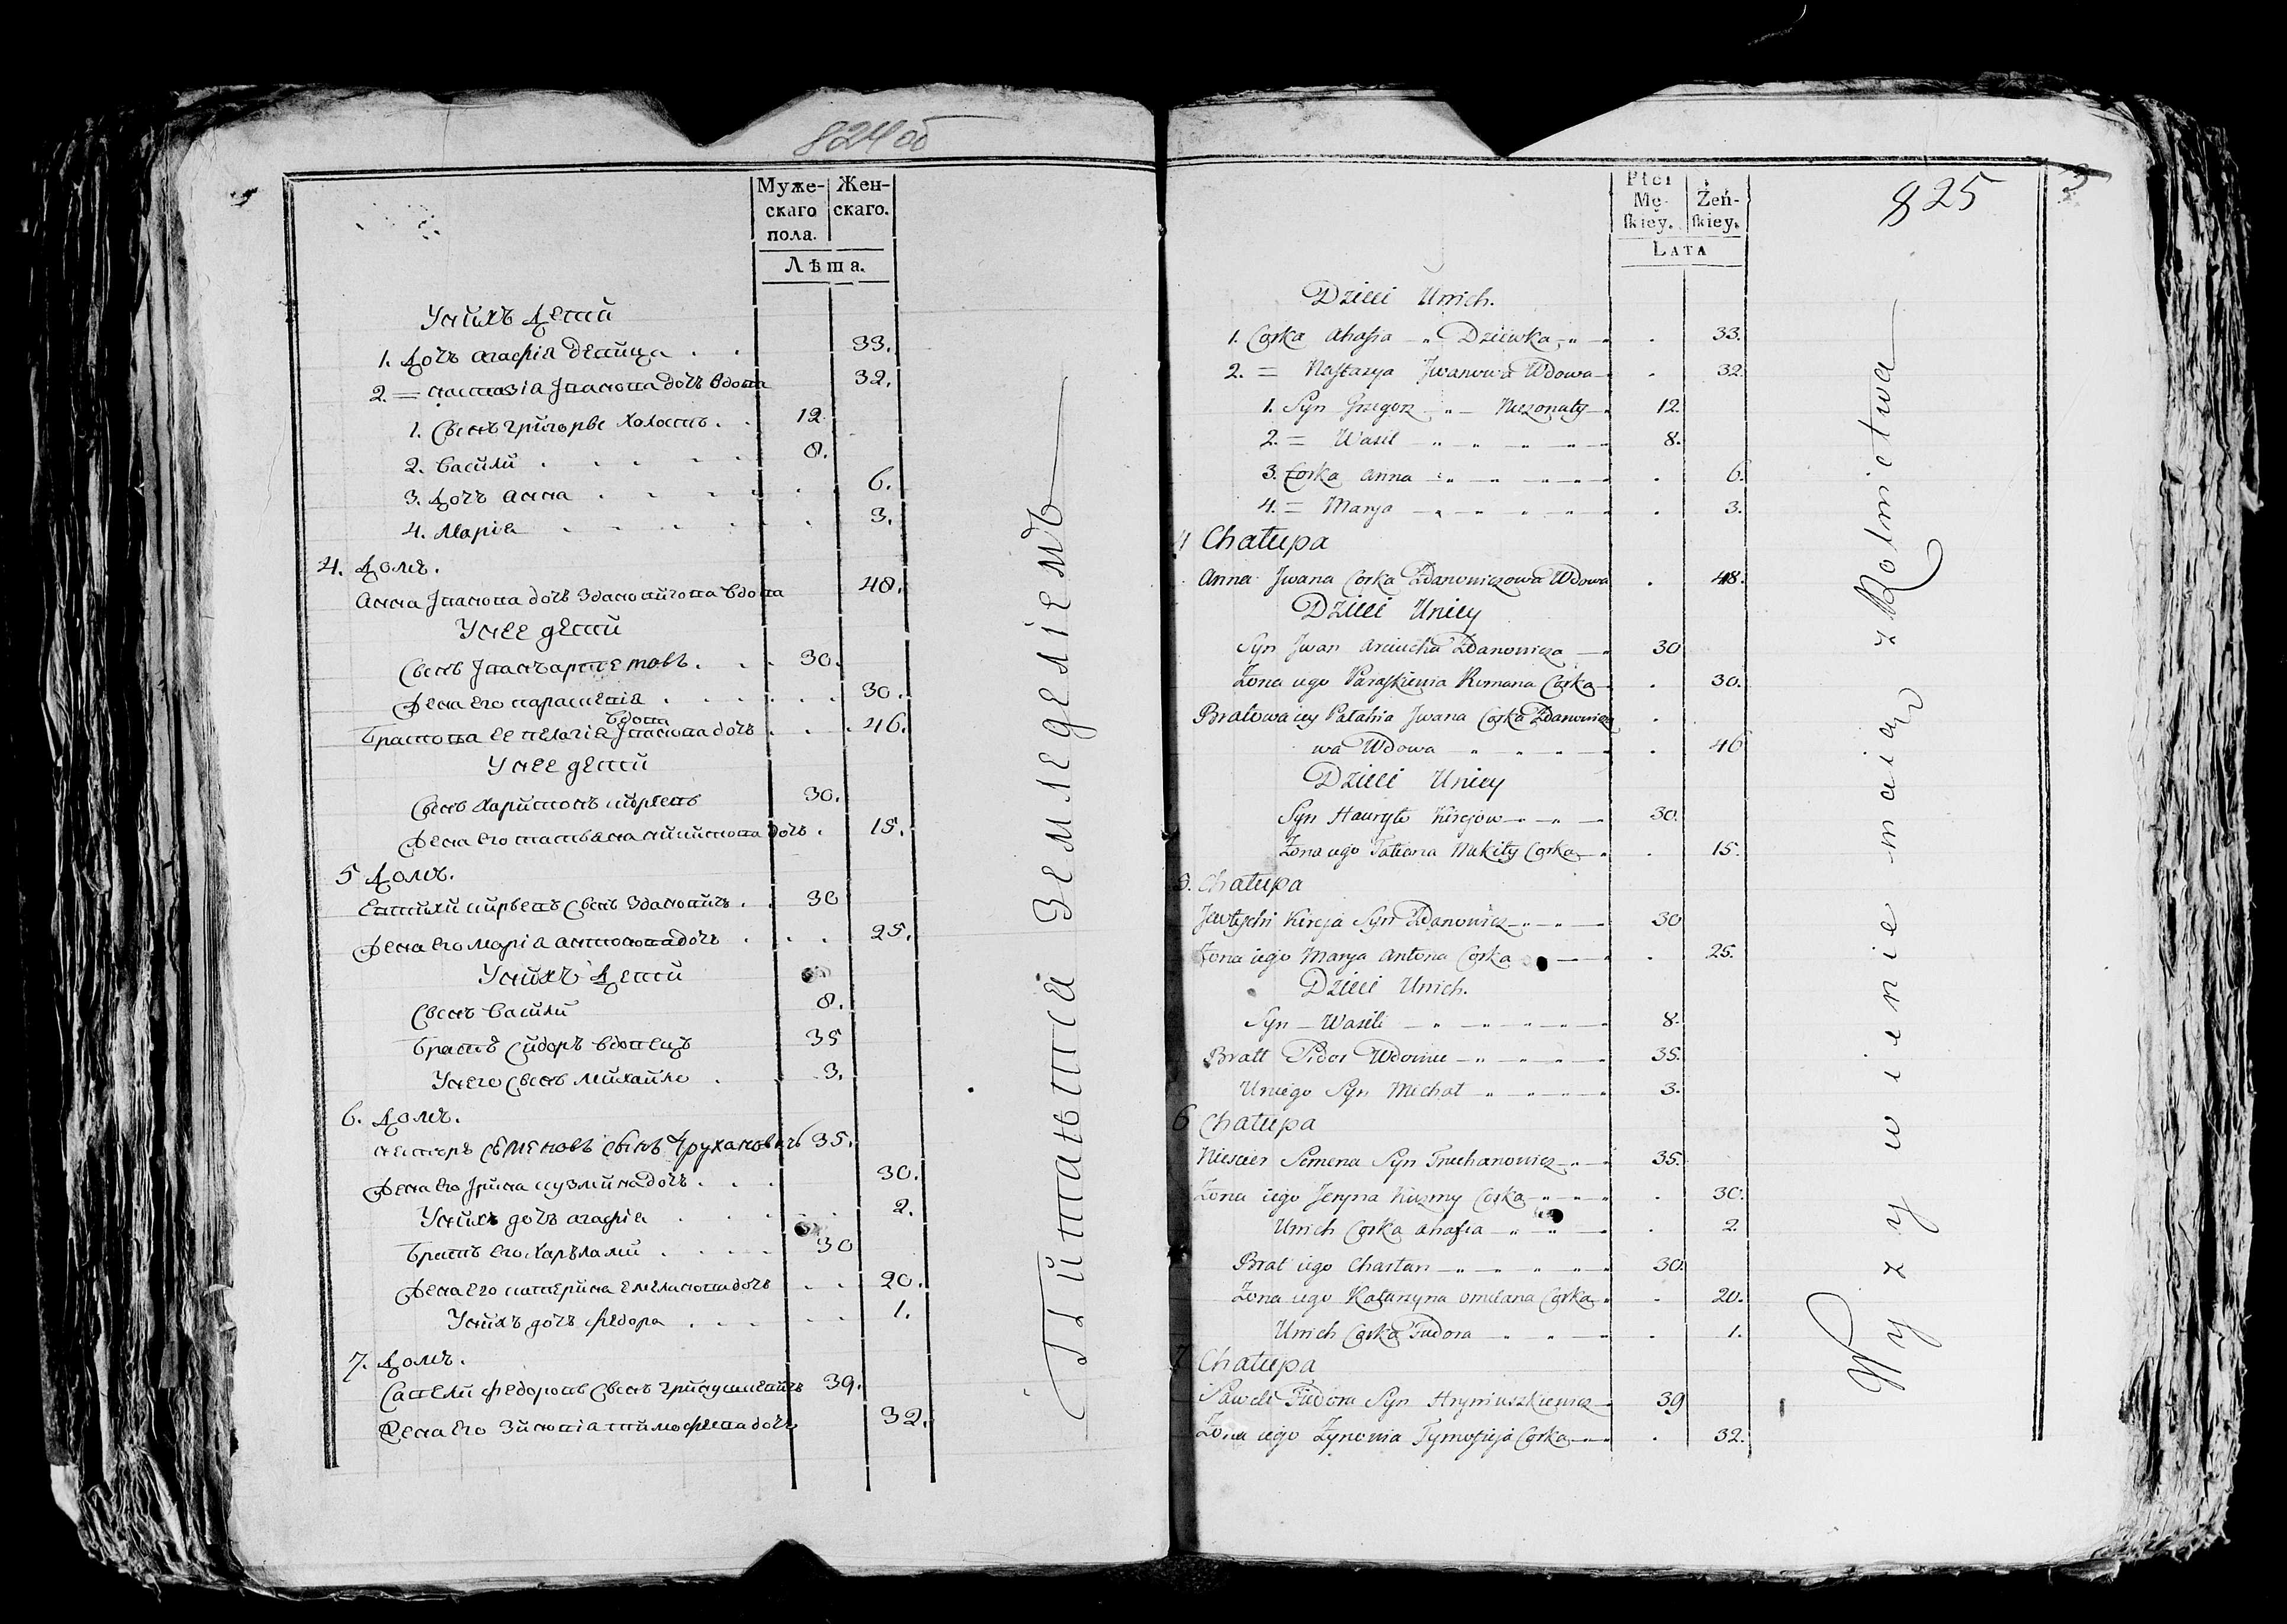 824 об
Муже- Жен-
скаго скаго.
пола.
Лѣта.
Унихъ Дети
1. Дочъ агафiя девица . . 33.
2. = настазiя Iванова дочъ вдова 32.
1. Сынъ григорье холостъ . . 12.
2. Васили . . . . 8.
3. Дочъ анна . . . . 6.
4. Марiя . . . . 3.
4. Домъ.
Анна Iванова дочъ Здановичова вдова 48.
Унее дети
Сынъ Iванъ . . . 30.
Жена его параскевiя . . . . 30.
вдова
Братова ее пелагiя Iванова дочъ . . . 46.
Унее дети
Сынъ Харитонъ 30.
Жена его татьяна никитова дочъ . 15.
5 Домъ.
Евтихи кирѣевъ Сынъ Здановичъ . . 30
Жена его марiя антонова дочъ . . . 25.
Унихъ Дети
Сынъ Васили 8.
Братъ Сидоръ вдовецъ 35
Унего Сынъ Михайло . . 3.
6. Домъ.
нестеръ Семеновъ Сынъ Трухановичъ 35.
Жена его Iрина кузмина дочъ . . . 30.
Унихъ дочъ агафiя . . . . 2.
Братъ его Харълами . . . . 30
Жена его катерина емелянова дочъ . . 20.
Унихъ дочъ федора . . . . . 1.
7. Домъ.
Савели федоровъ Сынъ гринушкевичъ 39.
Жена его Зиновiа тимофеева дочъ 32.
Питаютса Земледелiемъ
825
3
Płci
Mę- Żeń-
skiey. skiey.
LATA
Dzieci Unich.
1. Corka Ahafia „ Dziewka „ . 33.
2. = Nastazya Jwanowa Wdowa . 32
1. Syn Grzegorz „ Niezonaty 12.
2. = Wasil „ „ „ 8.
3. Corka Anna „ „ „ . 6.
4. = Marya „ „ „ . 3.
4 Chałupa
Anna Jwana Corka Zdanowiczowa Wdowa . 48.
Dzieci Uniey
Syn Jwan Arciucha Zdanowicza 30
Zona iego Paraskiewia Romana Corka . 30.
Bratowa iey Pałahia Jwana Corka Zdanowiczo .
wa Wdowa „ „ „ . 46
Dzieci Uniey
Syn Hauryło Kirejow „ „ 30.
Zona iego Tatiana Nikity Corka . 15.
5. Chałupa
Jewtychi Kireja Syn Zdanowicz „ „ 30
Zona iego Marya Antona Corka . 25.
Dzieci Unich.
Syn Wasili „ „ „ 8.
Bratt Sidor Wdowiec „ „ „ 35.
Uniego Syn Michał „ „ „ 3.
6 Chałupa
Niescier Semena Syn Truchanowicz „ 35.
Zona iego Jeryna Kuzmy Corka „ „ . 30.
Unich Corka Ahafia „ „ . 2.
Brat iego Charłan „ „ „ 30.
Zona iego Katarzyna Omelana Corka . 20.
Unich Corka Fiudora „ „ . 1.
7 Chałupa
Saweli Fiudora Syn Hryniuszkiewicz 39
Zona iego Zynowia Tymofieja Corka . 32.
Wyzywienie maią z Rolnictwa